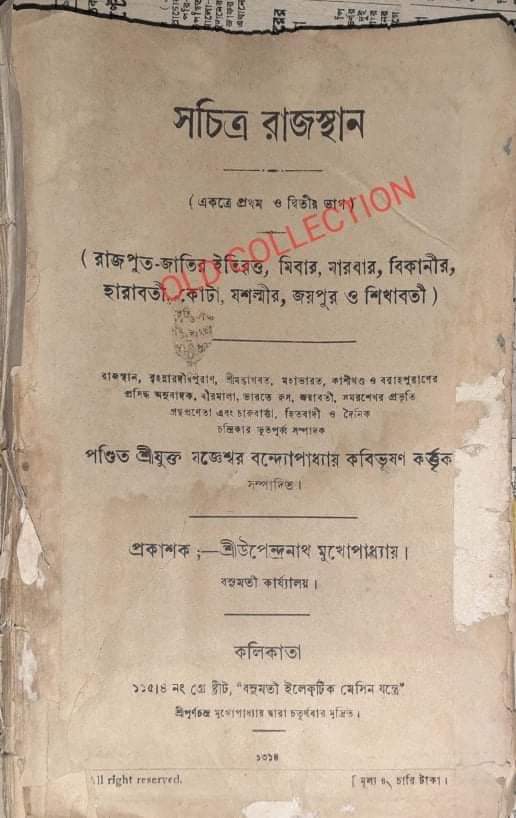 সচিত্র রাজস্থান
( একত্রে প্রথম ও দ্বিতীয় ভাগ )
( রাজপুত-জাতির ইতিবৃত্ত, মিবার, মারবার, বিকানীর,
হারাবতী, কোটা, যশল্মীর, জয়পুর ও শিখাবতী )
OLD COLLECTION
রাজস্থান, বৃহন্নারদীয়পুরাণ, শ্রীমদ্ভাগবত, মহাভারত, কাশীখণ্ড ও বরাহপুরাণের
প্রসিদ্ধ অনুবাদক, বীরমালা, ভারতে রুস, জয়াবতী, সমরশেখর প্রভৃতি
গ্রন্থপ্রণেতা এবং চারুবার্ত্তা, হিতবাদী ও দৈনিক
চন্দ্রিকার ভূতপূর্ব্ব সম্পাদক
পণ্ডিত শ্রীযুক্ত যজ্ঞেশ্বর বন্দ্যোপাধ্যায় কবিভূষণ কর্ত্তৃক
সম্পাদিত।
প্রকাশক ;—শ্রীউপেন্দ্রনাথ মুখোপাধ্যায়।
বসুমতী কার্য্যালয়।
কলিকাতা
১১৫।৪ নং গ্রে ষ্ট্রীট, "বসুমতী ইলেক্‌ট্রিক মেসিন যন্ত্রে"
শ্রীপূর্ণচন্দ্র মুখোপাধ্যায় দ্বারা চতুর্থবার মুদ্রিত।
১৩১৪
All right reserved.
[ মূল্য ৪৲ চারি টাকা।